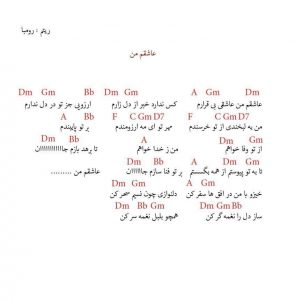 ریتم : رومبا
عاشقم من
Dm Gm Bb Dm Gm A Gm Dm
عاشقم من عاشقی بی قرارم کس ندارد خبر از دل زارم آرزویی جز تو در دل ندارم
A Bb F C Gm D7 F C Gm D7
من به لبخندی از تو خرسندم مهر تو ای مه آرزومندم بر تو پابندم
Dm Bb Gm A Dm
از تو وفا خواهم من ز خدا خواهم تا برهت بازم جاااااااااااان
Bb Dm A Gm
تا به تو پیوستم از همه بگسستم بر تو فدا سازم جاااااان عاشقم من .........
Dm Gm A Gm
خیزو با من در افق ها سفر کن دلنوازی چون نسیم سحر کن
Dm Bb Gm Dm Gm Bb
ساز دل را نغمه گر کن همچو بلبل نغمه سر کن